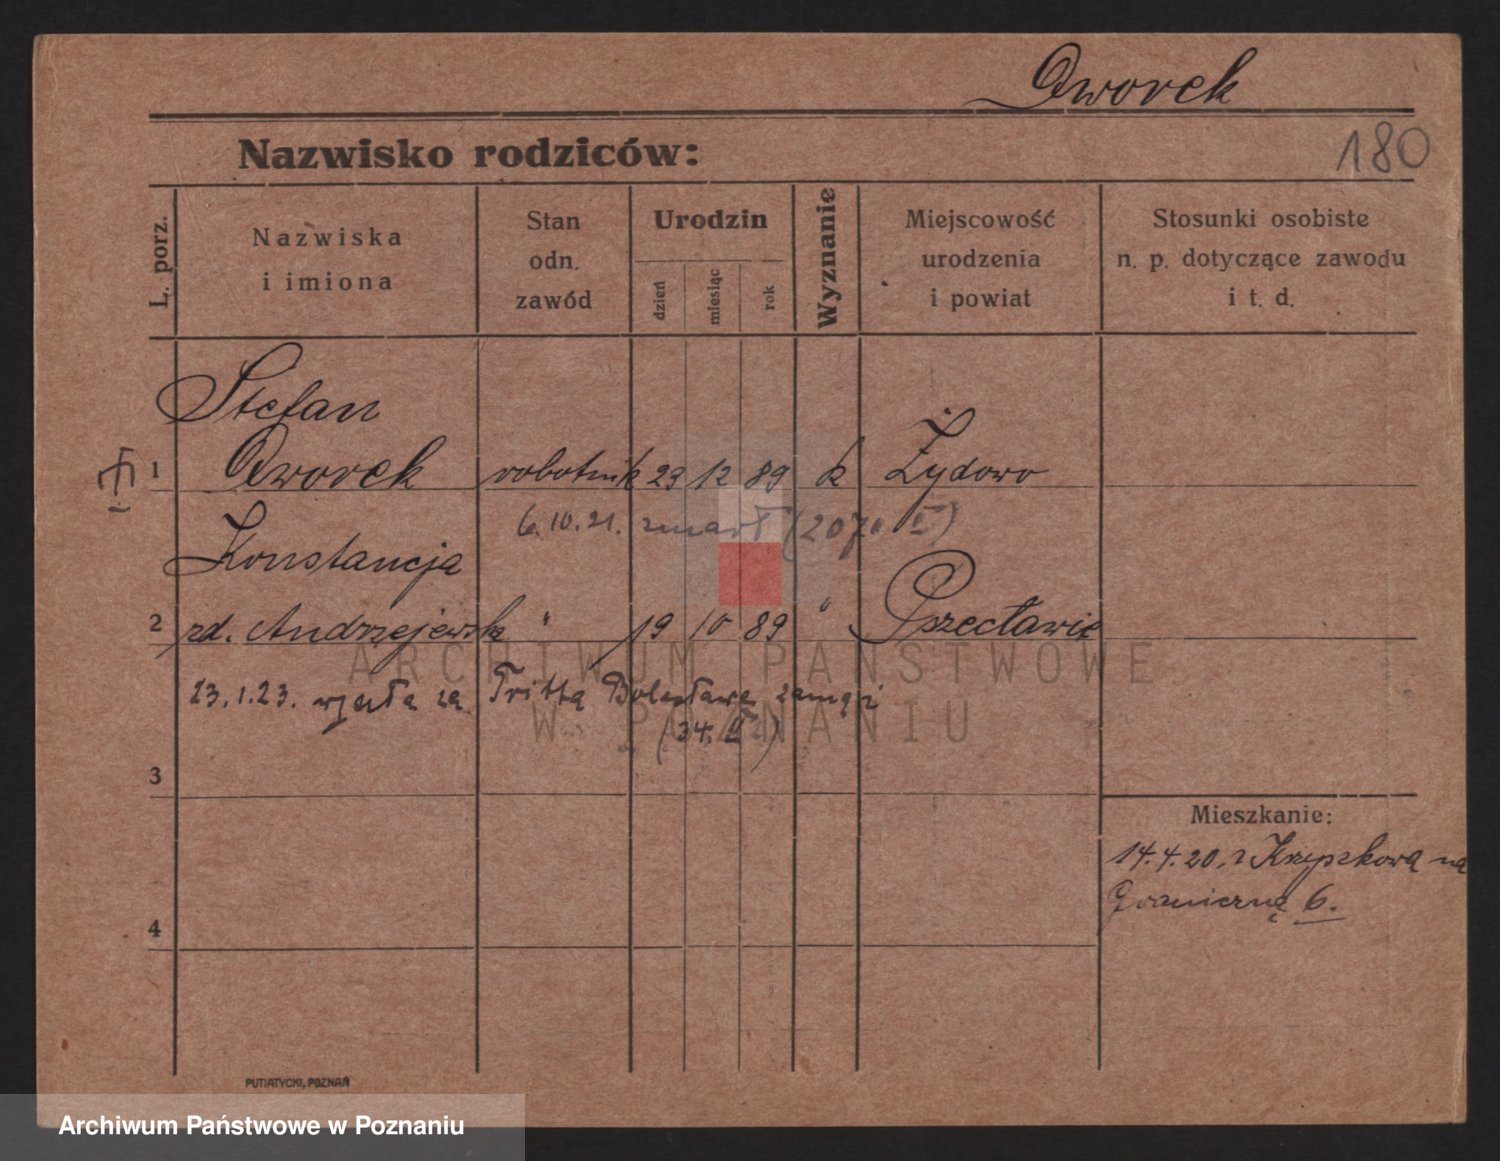 Dworek
180
Nazwisko rodziców:
L. porz.
Nazwiska
i imiona
Stan
odn.
zawód
Urodzin
dzień
miesiąc
rok
Wyznanie
Miejscowość
urodzenia
i powiat
Stosunki osobiste
n. p. dotyczące zawodu
i t. d.
Stefan
1 Dworek robotnik 23 12 89 k Żydowo
6.10.21. zmarł (207
Konstancja
2 zd. Andrzejewska " 19 10 89 " Przecławie
23.1.23. wyszła za Tritta Bolesława zamąż
(34. II)
3
Mieszkanie:
14.4.20. z na
Graniczną 6.
4
PUTIATYCKI, POZNAŃ
ARCHIWUM PAŃSTWOWE
W POZNANIU
Archiwum Państwowe w Poznaniu